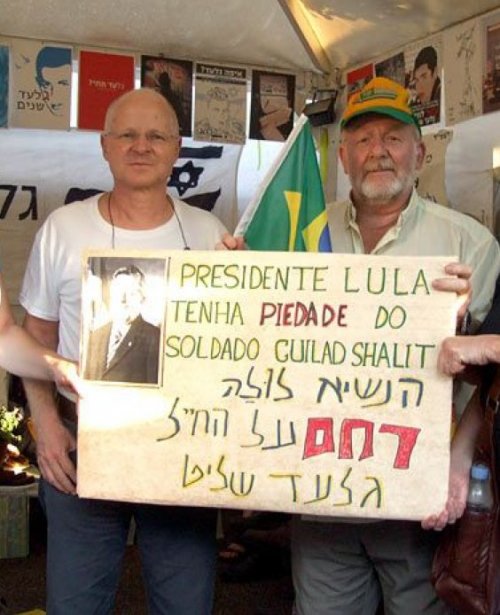 איפה גלעד?
PRESIDENTE LULA
TENHA PIEDADE DO
SOLDADO GUILAD SHALIT
הנשיא לולה
רחם על החייל
גלעד שליט